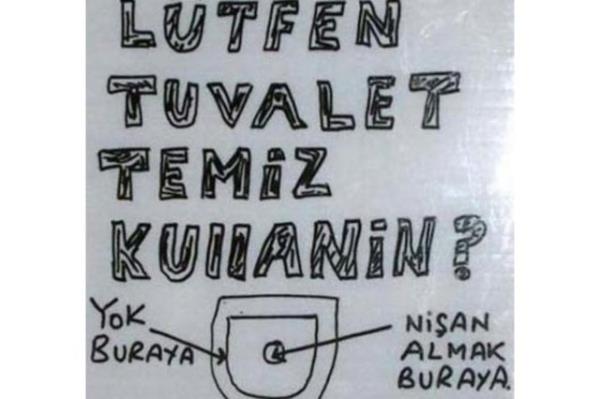 LUTFEN
TUVALET
TEMİZ
KULLANİN?
YOK
BURAYA
NİŞAN
ALMAK
BURAYA.